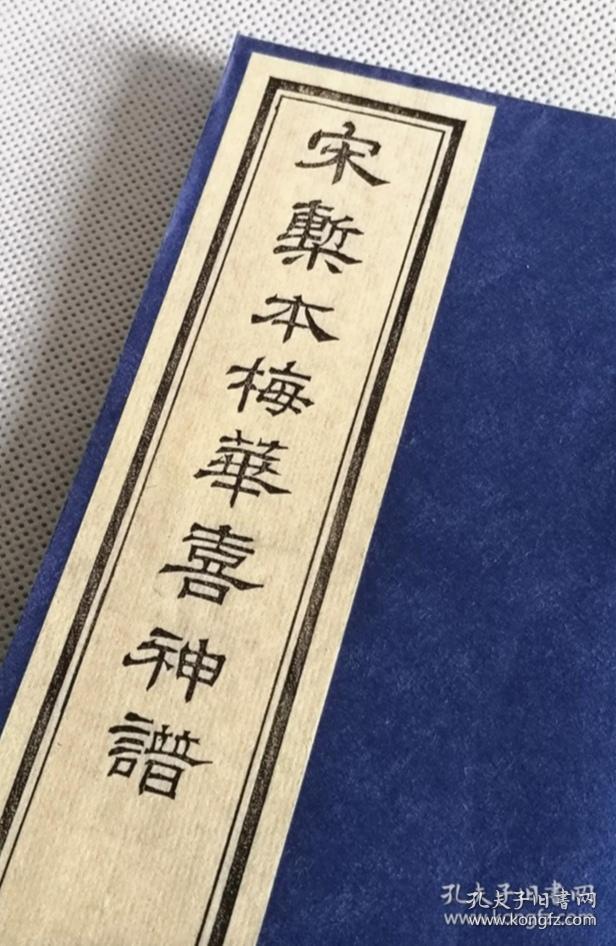 宋槧本梅華喜神譜
孔夫子旧書网
www.kongfz.com